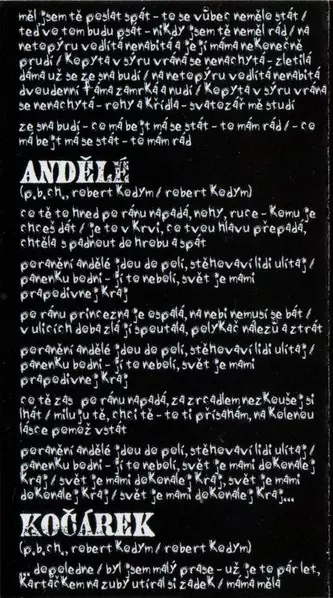 měl jsem tě poslat spát - to se vůbec nemělo stát /
teď vo tom budu psát - nikdy jsem tě neměl rád / na
netopýru vodlítá nenabitá a její máma nekonečně
prudí / kopyta v sýru vrána se nenachytá - zletilá
dáma už se ze sna budí / na netopýru vodlítá nenabitá
dvoudenní tama zamrká a nudí / kopyta v sýru vrána
se nenachytá - rohy a křídla - svatozář mě studí
ze sna budí - co má bejt má se stát - to mám rád / - co
má bejt má se stát - to mám rád
ANDĚLÉ
(p.b.ch., robert kodym / robert kodym)
co tě to hned po ránu napadá, nohy, ruce - komu je
chceš dát / je to v krvi, co tvou hlavu přepadá,
chtěla s padnout do hrobu a spát
poranění andělé jdou do polí, stěhovaví lidi ulítaj /
panenku bodni - jí to nebolí, svět je mámi
prapodivnej kraj
po ránu princezna je ospalá, na nebi nemusí se bát /
v ulicích doba zlá jí spoutala, polykač nálezů a ztrát
poranění andělé jdou do polí, stěhovaví lidi ulítaj /
panenku bodni - jí to nebolí, svět je mámi
prapodivnej kraj
co tě zas po ránu napadá, za zrcadlem nezkoušej si
lhát / miluju tě, chci tě - to ti přísahám, na kolenou
lásce pomož vstát
poranění andělé jdou do polí, stěhovaví lidi ulítaj /
panenku bodni - jí to nebolí, svět je mámi dokonalej
kraj / svět je mámi dokonalej kraj, svět je mámi
dokonalej kraj / svět je mámi dokonalej kraj...
KOČÁREK
(p.b.ch., robert kodym / robert kodym)
... dopoledne / byl jsem malý prase - už je to pár let,
kartáčkem na zuby utíral si zadek / máma měla